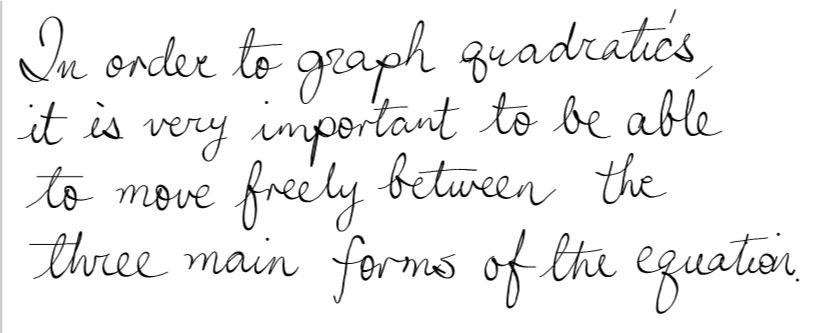 In order to graph quadratics,
it is very important to be able
to move freely between the
three main forms of the equation.